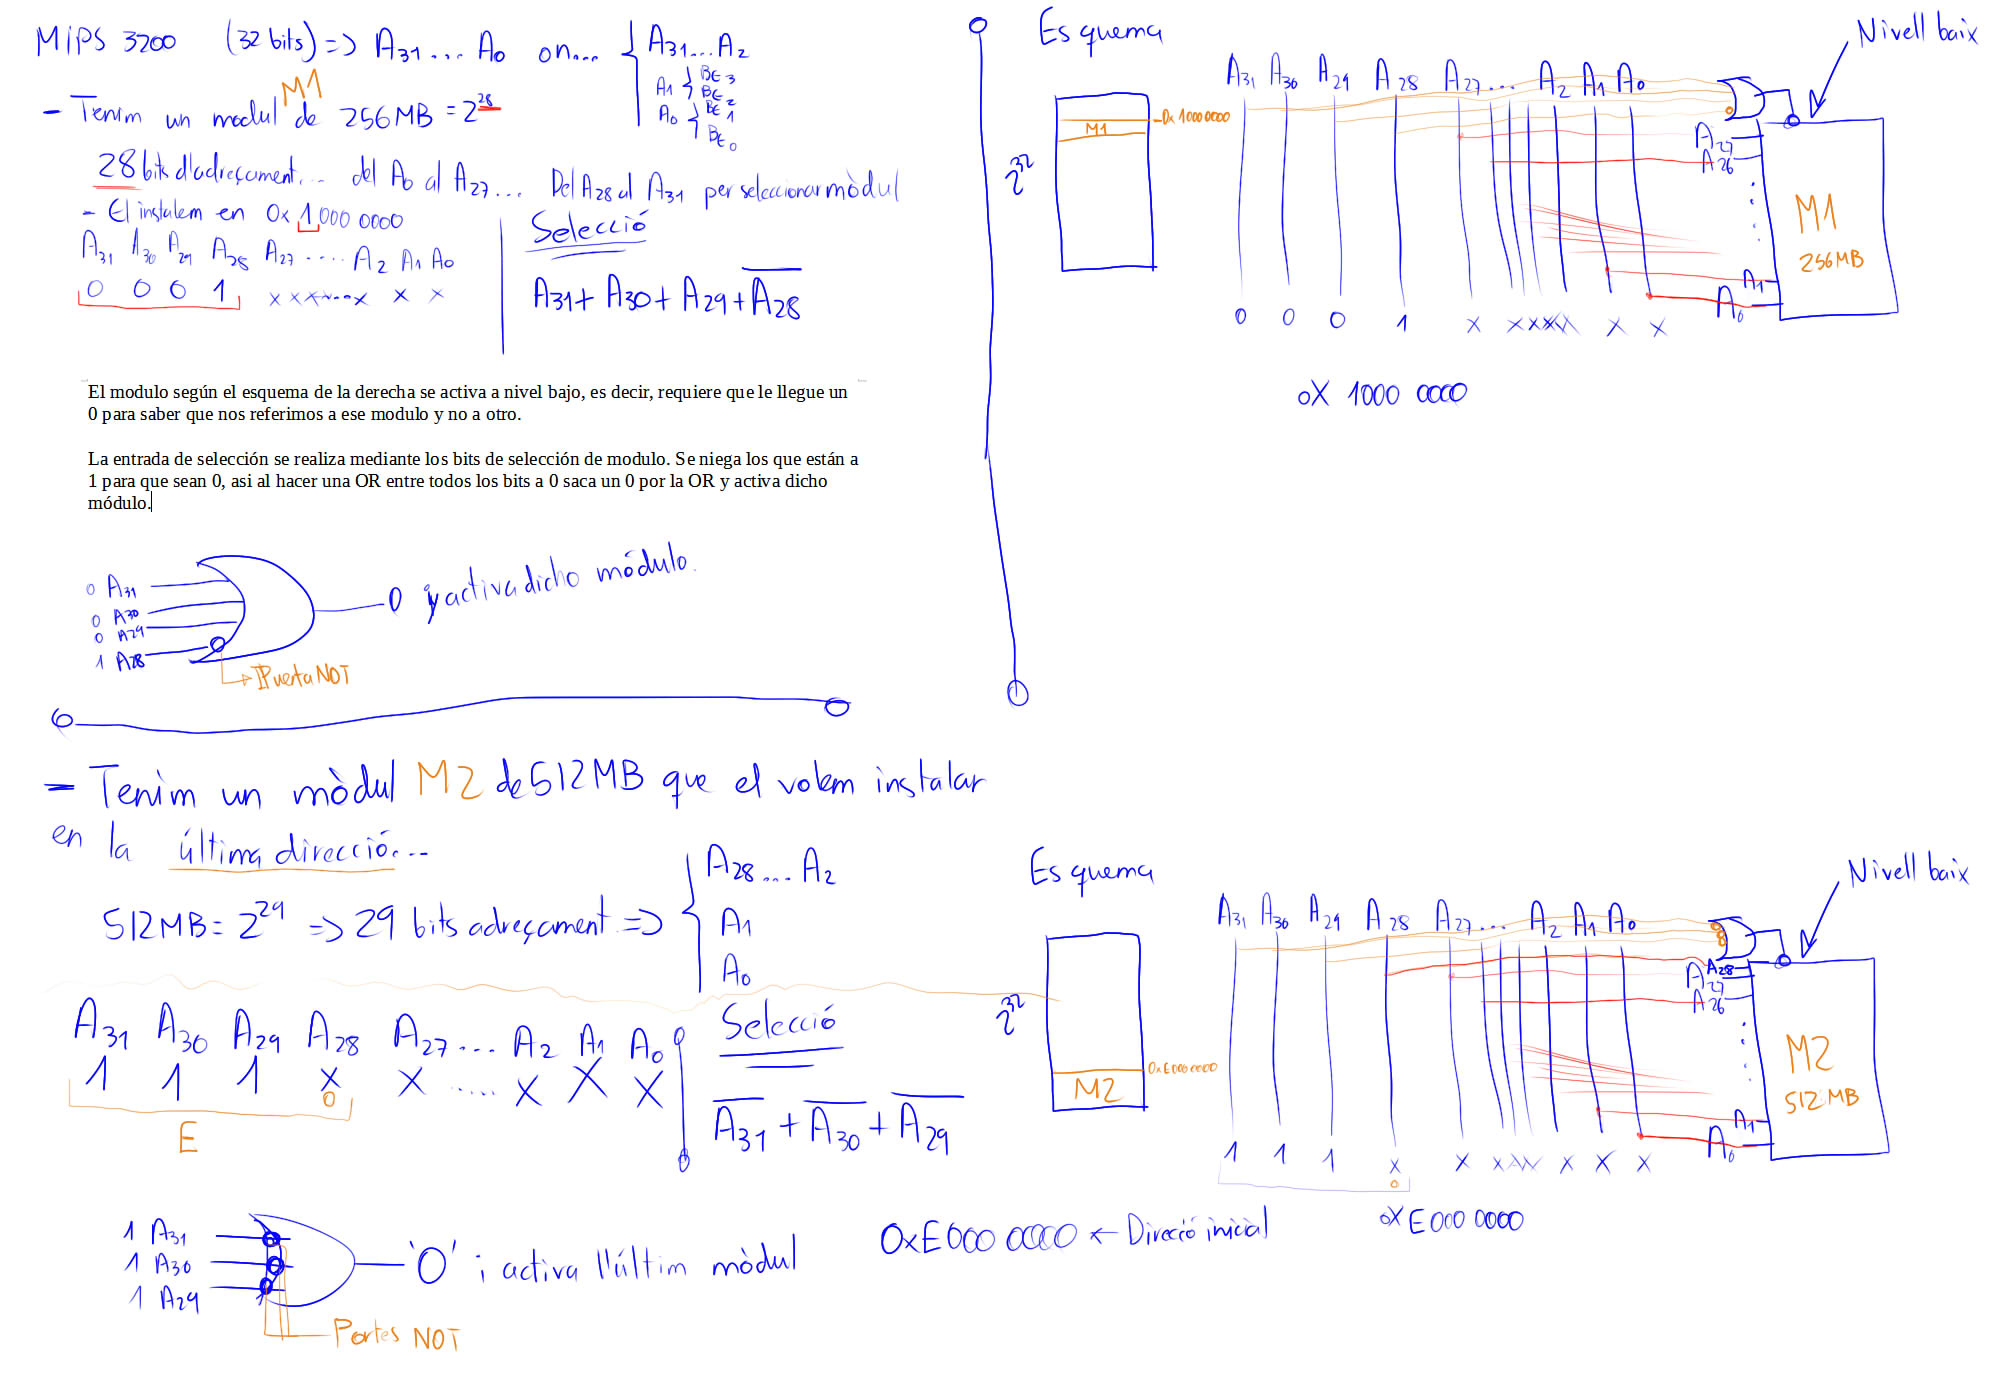 MiPS 3200 (32 bits) => A31 ... A0 on... A31...A2
A1 BE3
BE2
A0 BE1
BE0
M1
- Tenim un modul de 256MB = 2^28
28 bits d'adreçament... del A0 al A27... Del A28 al A31 per seleccionar mòdul
- El instalem en 0x 1000 0000
A31 A30 A29 A28 A27 .... A2 A1 A0
0 0 0 1 x x x x...x x x
Selecció
A31 + A30 + A29 + A̅28
El modulo según el esquema de la derecha se activa a nivel bajo, es decir, requiere que le llegue un
0 para saber que nos referimos a ese modulo y no a otro.
La entrada de selección se realiza mediante los bits de selección de modulo. Se niega los que están a
1 para que sean 0, asi al hacer una OR entre todos los bits a 0 saca un 0 por la OR y activa dicho
módulo.
0 A31
0 A30
0 A29
1 A28
0 y activa dicho módulo.
Puerta NOT
Esquema
Nivell baix
A31 A30 A29 A28 A27 ... A2 A1 A0
0x 1000 0000
M1
2^32
A27
A26
M1
256MB
A1
A0
0 0 0 1 x xxxxx x x
0X 1000 0000
- Tenim un mòdul M2 de 512MB que el volem instalar
en la última direcció...
512MB = 2^29 => 29 bits adreçament => A28 ... A2
A1
A0
A31 A30 A29 A28 A27 ... A2 A1 A0
1 1 1 x x ..... x x x
0
E
Selecció
A̅31 + A̅30 + A̅29
1 A31
1 A30
1 A29
'0' i activa l'últim mòdul
Portes NOT
0xE000 0000 ← Direcció inicial
Esquema
Nivell baix
A31 A30 A29 A28 A27 ... A2 A1 A0
2^32
0xE000 0000
M2
A28
A27
A26
M2
512 MB
A1
A0
1 1 1 x x xxx x x x
0
0X E000 0000